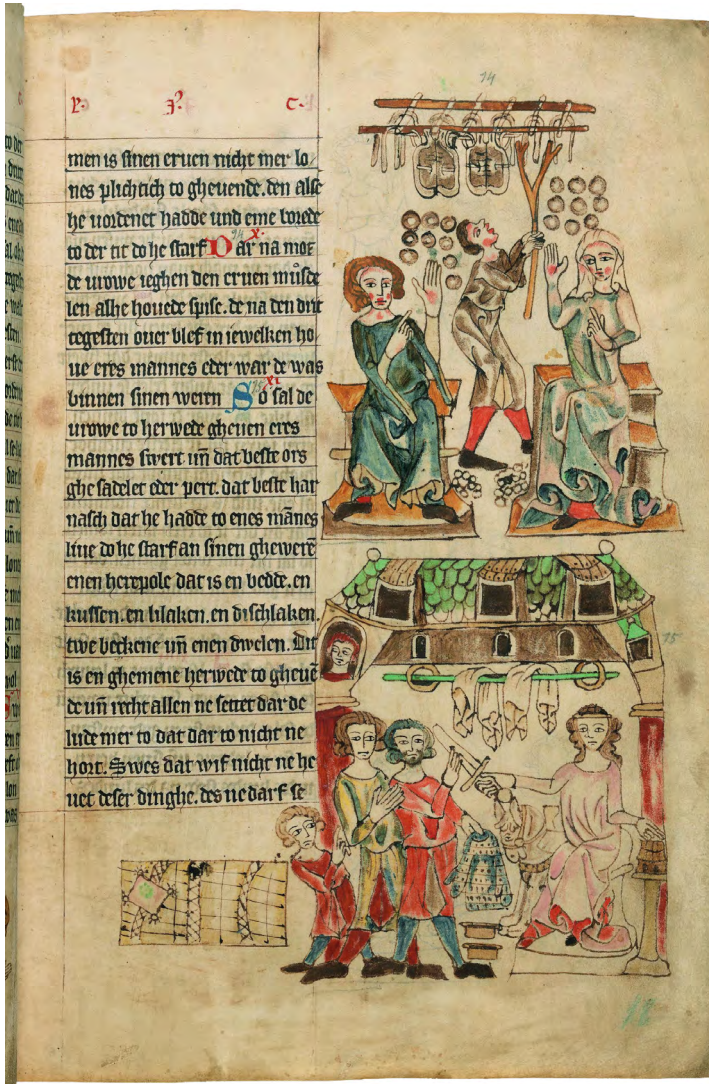 P. I? C.
14
men is sinen eruen nicht mer lo/
nes plichtich to gheuende. den alse
he uordenet hadde und eme borede
to der tit do he starf Dar na mot
14 XI.
de urowe ieghen den eruen můsde
len alle houede spise. de na den drit
tegesten ouer blef in iewelken ho
ue eres mannes eder war de was
binnen sinen weren So sal de
15 XI
urowe to herwede gheuen eres
mannes swert uñ dat beste ors
ghe sadelet eder pert. dat beste har
nasch dat he hadde to enes mānes
liue do he starf an sinen ghewerē
enen herepole dat is en bedde. en
kussen. en lilaken. en dischlaken.
twe beckene uñ enen dwelen. Dit
is en ghemene herwede to gheuē
de uñ recht allen ne settet dar de
lude mer to dat dar to nicht ne
hort. Swes dat wif nicht ne he
uet deser dinghe. des ne darf se
15